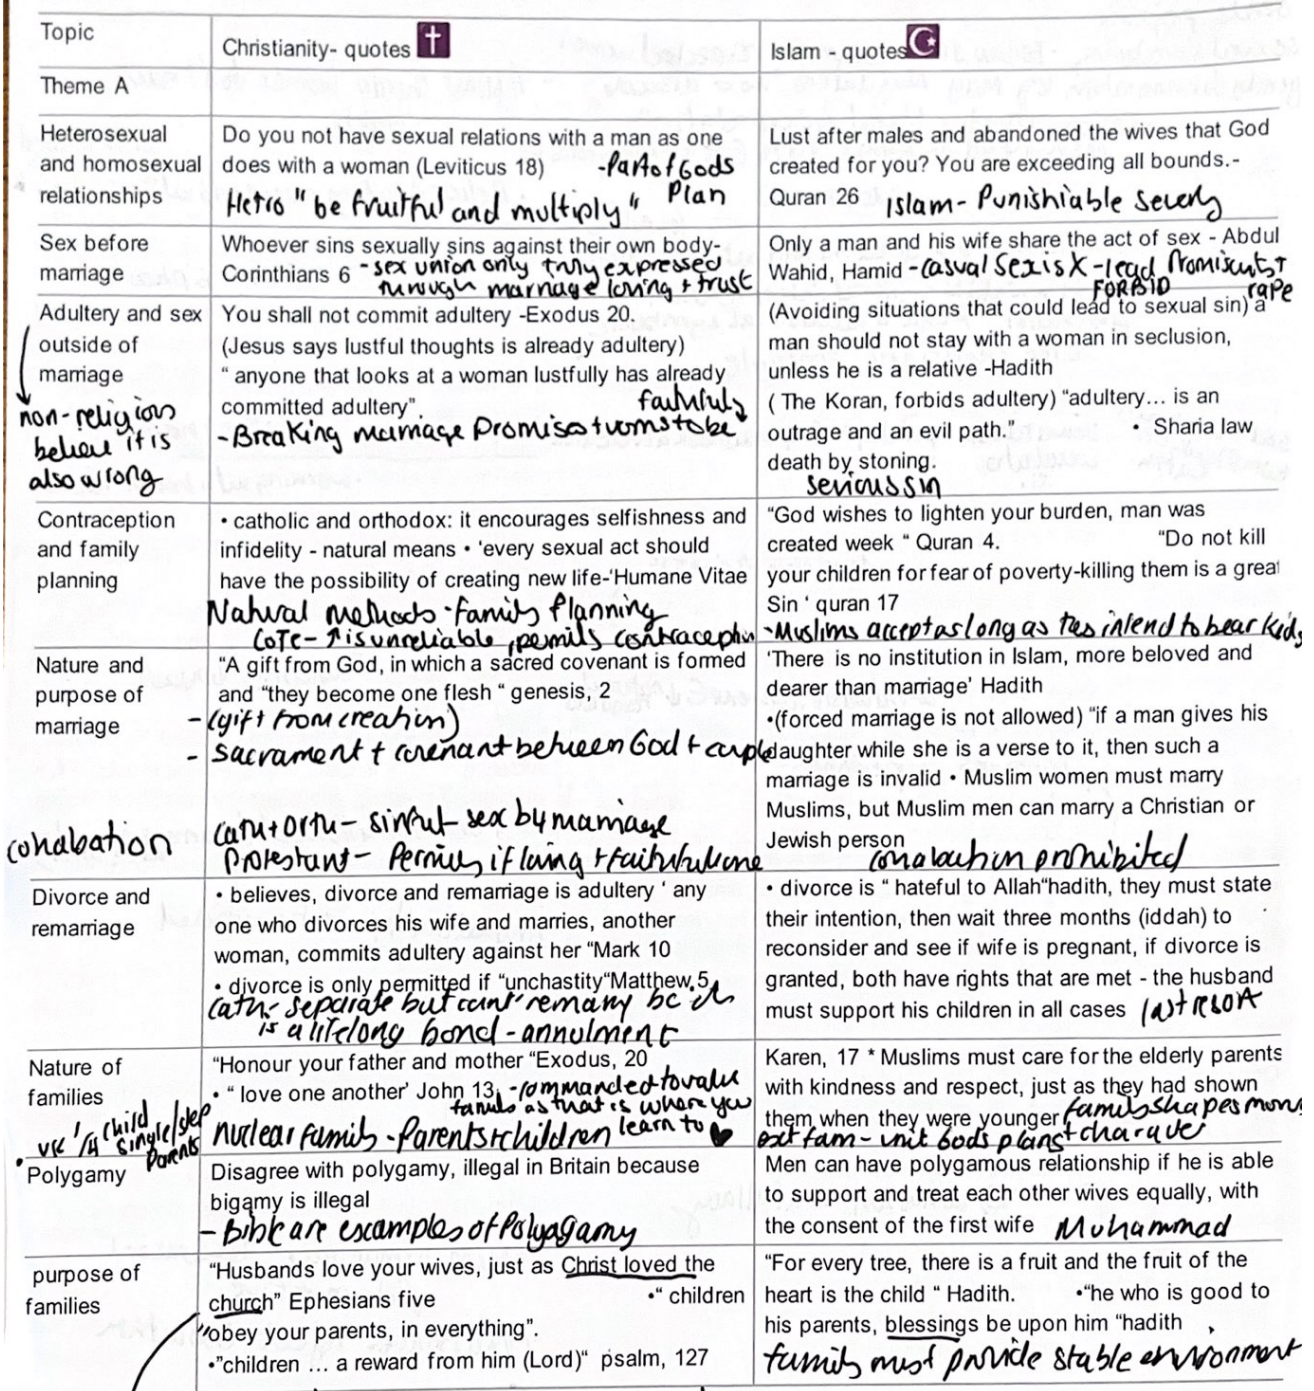 Topic
Christianity- quotes
Islam - quotes
Theme A
Heterosexual
and homosexual
relationships
Do you not have sexual relations with a man as one
does with a woman (Leviticus 18) -Part of Gods
Plan
Hetro " be fruitful and multiply "
Lust after males and abandoned the wives that God
created for you? You are exceeding all bounds.-
Quran 26 Islam - Punishiable severly
Sex before
marriage
Whoever sins sexually sins against their own body-
Corinthians 6 -sex union only truly expressed
through marriage loving + trust
Only a man and his wife share the act of sex - Abdul
Wahid, Hamid -casual sex is X -lead promiscuity +
FORBID rape
Adultery and sex
outside of
marriage
non-religious
believe it is
also wrong
You shall not commit adultery -Exodus 20.
(Jesus says lustful thoughts is already adultery)
" anyone that looks at a woman lustfully has already
committed adultery". faithful
-Breaking marriage promises + vows to be
(Avoiding situations that could lead to sexual sin) a
man should not stay with a woman in seclusion,
unless he is a relative -Hadith
( The Koran, forbids adultery) "adultery... is an
outrage and an evil path." • Sharia law
death by stoning.
serious sin
Contraception
and family
planning
• catholic and orthodox: it encourages selfishness and
infidelity - natural means • 'every sexual act should
have the possibility of creating new life-'Humane Vitae
Natural methods - family planning
COTE - ↑ is unreliable, permits contraception
"God wishes to lighten your burden, man was
created week " Quran 4. "Do not kill
your children for fear of poverty-killing them is a great
Sin ' quran 17
-Muslims accept as long as they intend to bear kids
Nature and
purpose of
marriage
"A gift from God, in which a sacred covenant is formed
and "they become one flesh " genesis, 2
- (gift from creation)
- sacrament + covenant between God + couple
'There is no institution in Islam, more beloved and
dearer than marriage' Hadith
•(forced marriage is not allowed) "if a man gives his
daughter while she is a verse to it, then such a
marriage is invalid • Muslim women must marry
Muslims, but Muslim men can marry a Christian or
Jewish person
cohabation
cath + Orth - sinful - sex by marriage
Protestant - Permits if loving + faithful
cohabation prohibited
Divorce and
remarriage
• believes, divorce and remarriage is adultery ' any
one who divorces his wife and marries, another
woman, commits adultery against her "Mark 10
• divorce is only permitted if "unchastity"Matthew,5
cath - separate but cant remarry bc it
is a lifelong bond - annulment
• divorce is " hateful to Allah"hadith, they must state
their intention, then wait three months (iddah) to
reconsider and see if wife is pregnant, if divorce is
granted, both have rights that are met - the husband
must support his children in all cases last resort
Nature of
families
• UK 1/4 child single/step
parents
"Honour your father and mother "Exodus, 20
• " love one another' John 13, -commanded to value
family as that is where you
nuclear family - Parents + children learn to ♥
Karen, 17 * Muslims must care for the elderly parents
with kindness and respect, just as they had shown
them when they were younger family shapes morals
ext fam - unit Gods plans + character
Polygamy
Disagree with polygamy, illegal in Britain because
bigamy is illegal
- Bible are examples of Polyagamy
Men can have polygamous relationship if he is able
to support and treat each other wives equally, with
the consent of the first wife Muhammad
purpose of
families
"Husbands love your wives, just as Christ loved the
church" Ephesians five •" children
"obey your parents, in everything".
•"children ... a reward from him (Lord)" psalm, 127
"For every tree, there is a fruit and the fruit of the
heart is the child " Hadith. •"he who is good to
his parents, blessings be upon him "hadith
family must provide stable environment